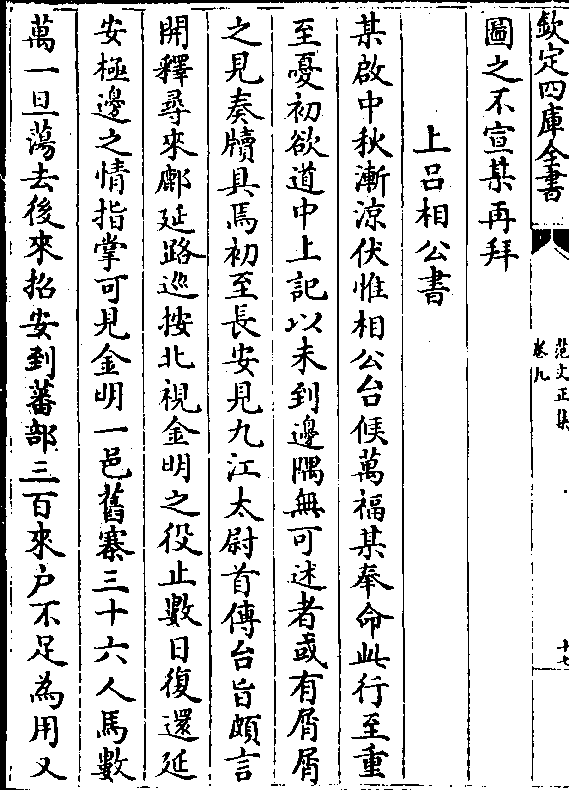 欽定四庫全書
范文正集
卷九
十七
圖之不宣某再拜
上呂相公書
某啟中秋漸涼伏惟相公台候萬福某奉命此行至重
至憂初欲道中上記以未到邊隅無可述者或有屑屑
之見奏牘具焉初至長安見九江太尉首傳台旨頗言
開釋尋來鄜延路巡按北視金明之役止數日復還延
安極邊之情指掌可見金明一邑舊寨三十六人馬數
萬一旦蕩去後來招安到蕃部三百來户不足為用又